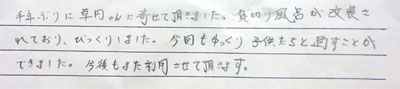 半年ぶりに草円さんに寄せて頂きました。貸切り風呂が改装さ
れており、びっくりしました。今回もゆっくり子供たちと過すことが
できました。今後もまた利用させて頂きます。